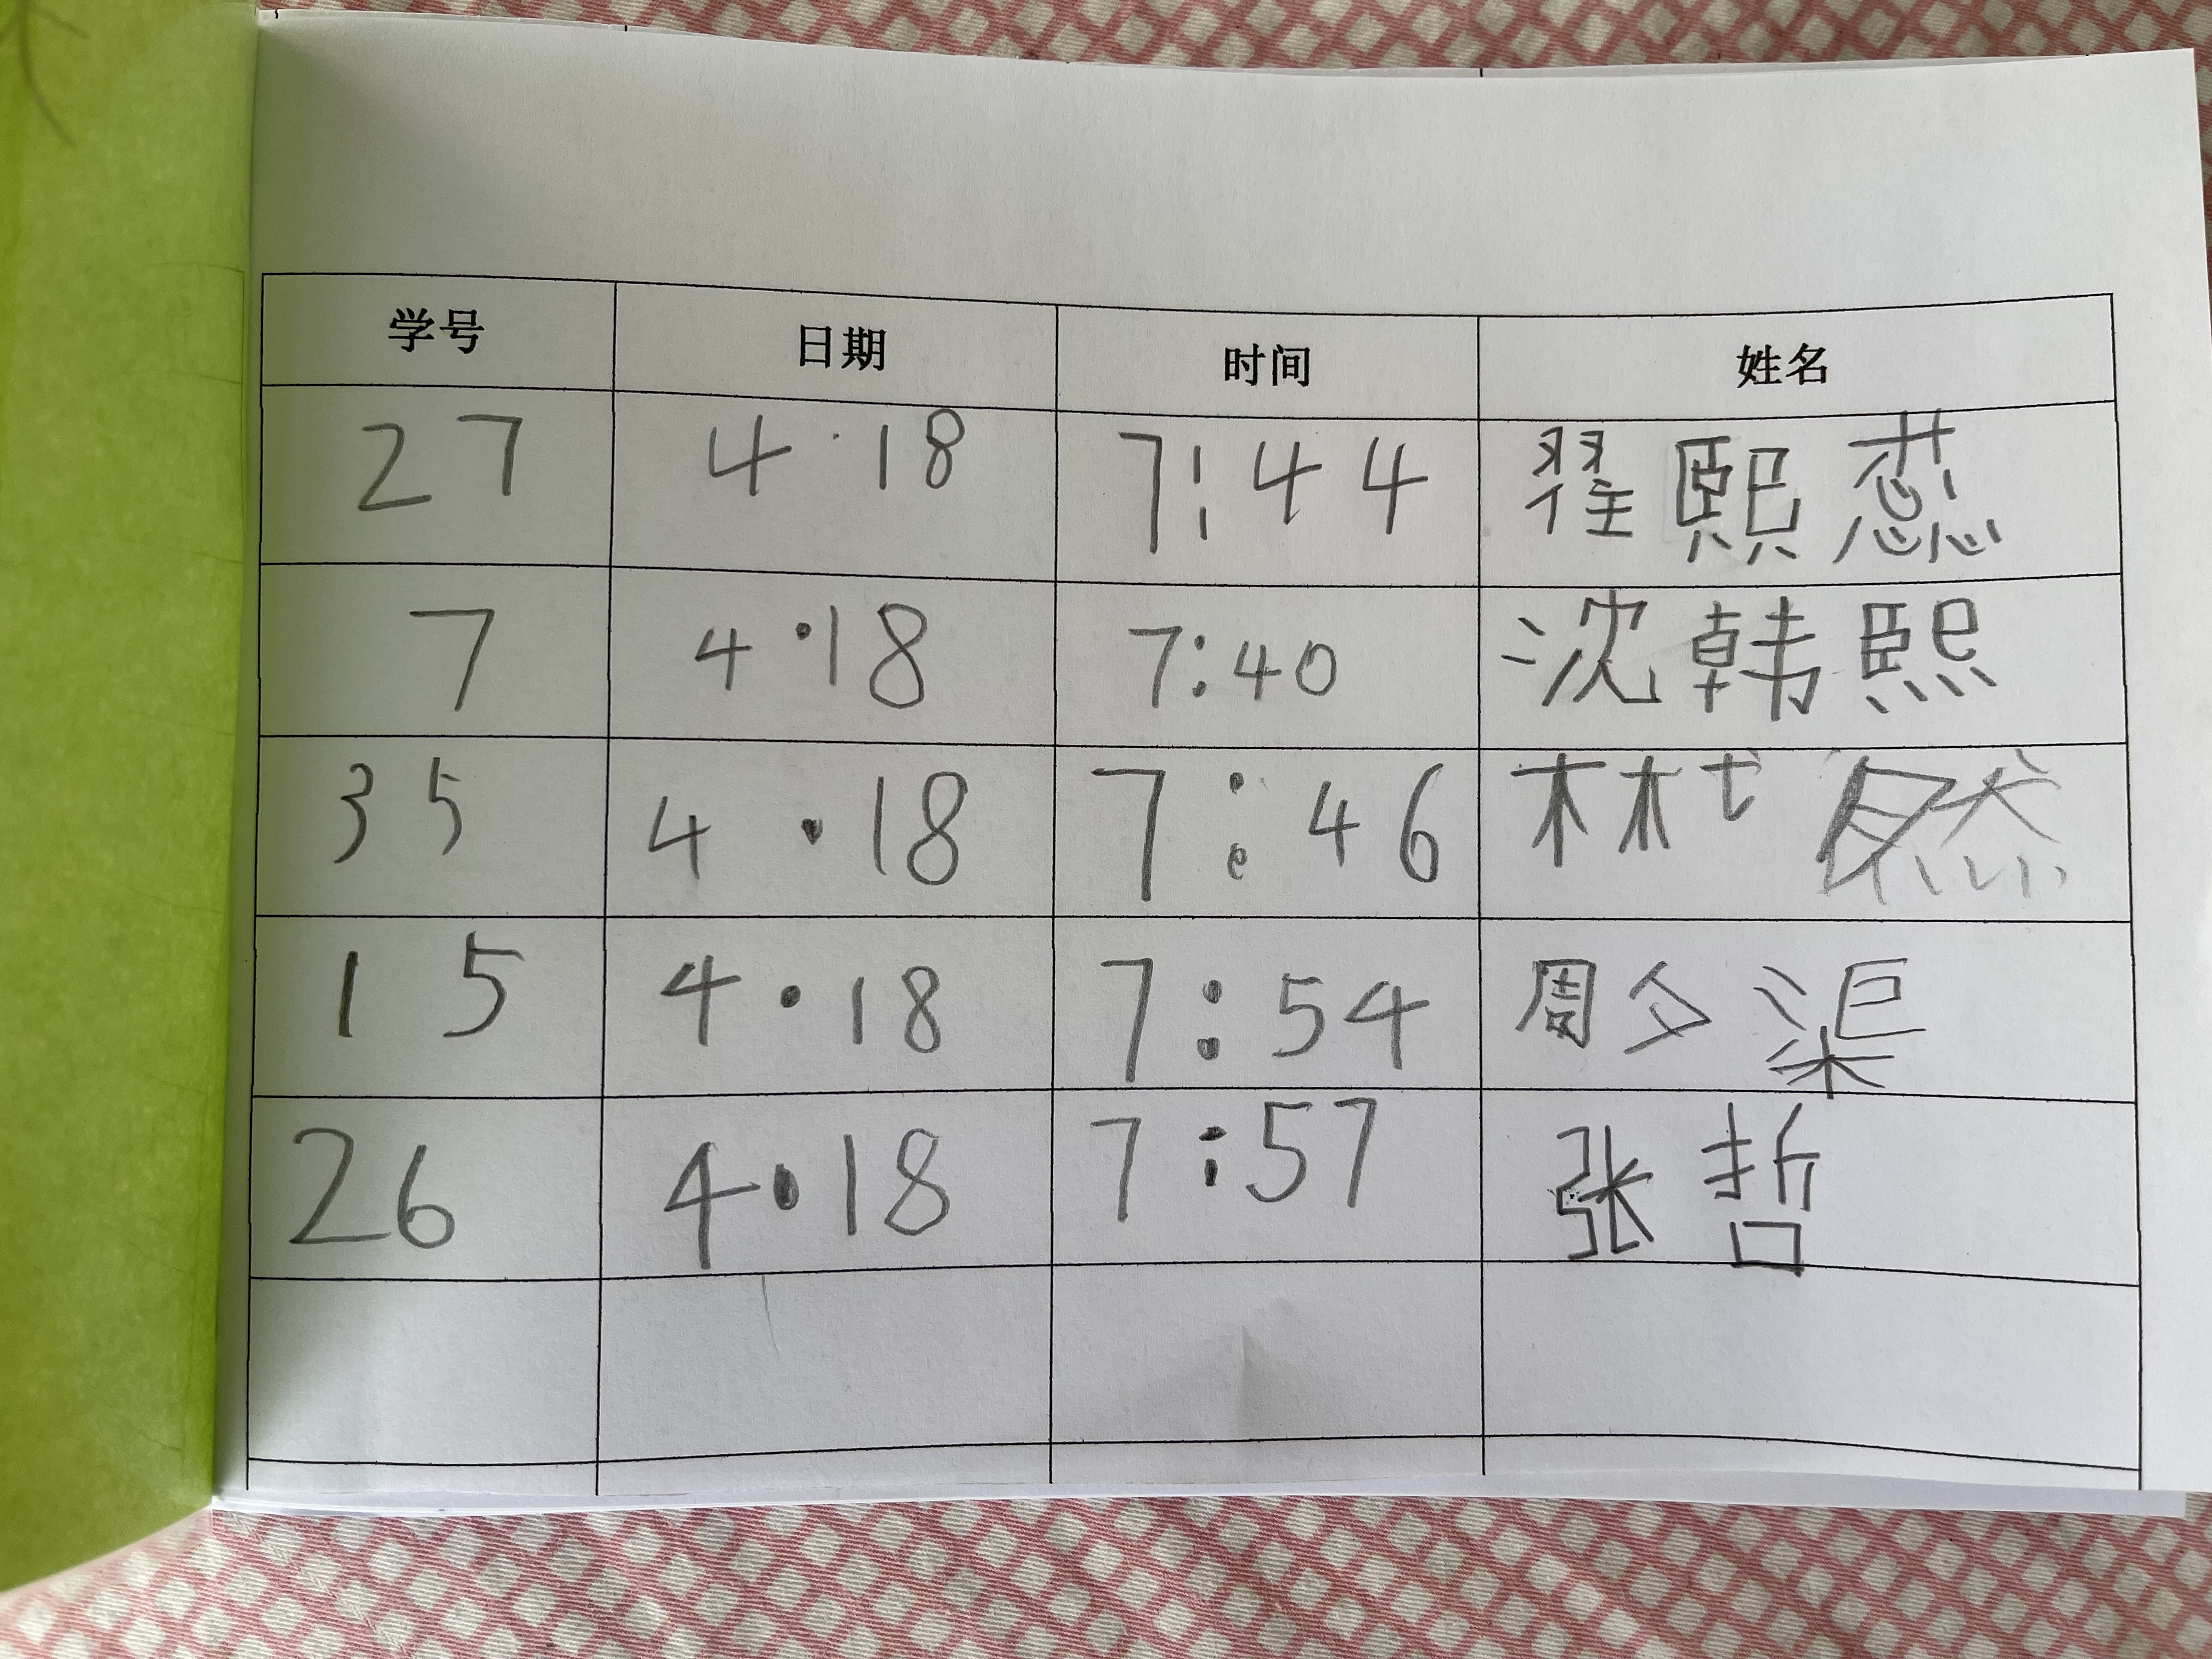 学号 日期 时间 姓名
27 4·18 7:44 翟熙蕊
7 4·18 7:40 沈韩熙
35 4·18 7:46 林弋然
15 4·18 7:54 周夕渠
26 4·18 7:57 张哲